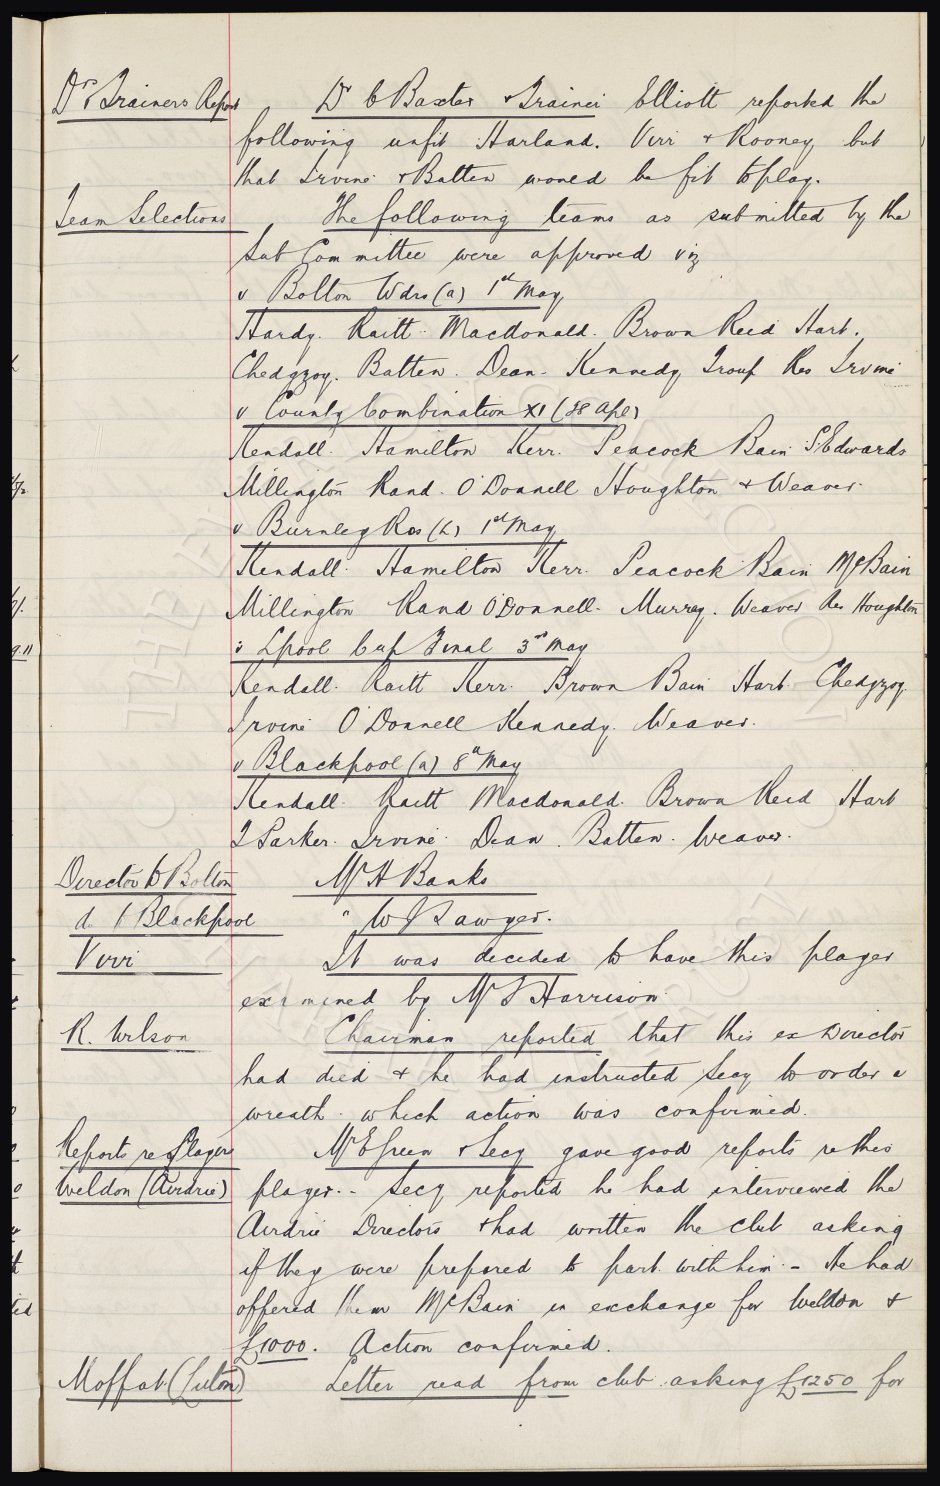 Drs & Trainers Report Dr C Baxter & Trainer Elliott reported the
following unfit Harland. Virr & Rooney but
that Irvine & Batten would be fit to play.
Team Selections The following teams as submitted by the
Sub Committee were approved viz
v Bolton Wdrs (a) 1st May
Hardy. Raitt. Macdonald. Brown Reid Hart.
Chedgzoy. Batten. Dean. Kennedy Troup Res Irvine
v County Combination XI (28 Apl)
Kendall. Hamilton Kerr. Peacock Bain S Edwards
Millington Rand. O'Donnell Houghton & Weaver.
v Burnley Res (h) 1st May
Kendall. Hamilton Kerr. Peacock Bain McBain
Millington Rand O'Donnell. Murray. Weaver Res Houghton
v Lpool Cup Final 3rd May
Kendall. Raitt Kerr. Brown Bain Hart. Chedgzoy.
Irvine O'Donnell Kennedy. Weaver.
v Blackpool (a) 8th May
Kendall. Raitt Macdonald. Brown Reid Hart
J Parker. Irvine. Dean. Batten. Weaver.
Director to Bolton Mr H Banks
d. t Blackpool " W J Sawyer.
Virr It was decided to have this player
examined by Mr Harrison.
R. Wilson Chairman reported that this ex Director
had died & he had instructed Secy to order a
wreath. which action was confirmed.
Reports re Player Mr E Green & Secy gave good reports re this
Weldon (Airdrie) player.- Secy reported he had interviewed the
Airdrie Directors & had written the club asking
if they were prepared to part with him. - He had
offered them McBain in exchange for Weldon &
£1000. Action confirmed.
Moffat (Luton) Letter read from club. asking £1250 for